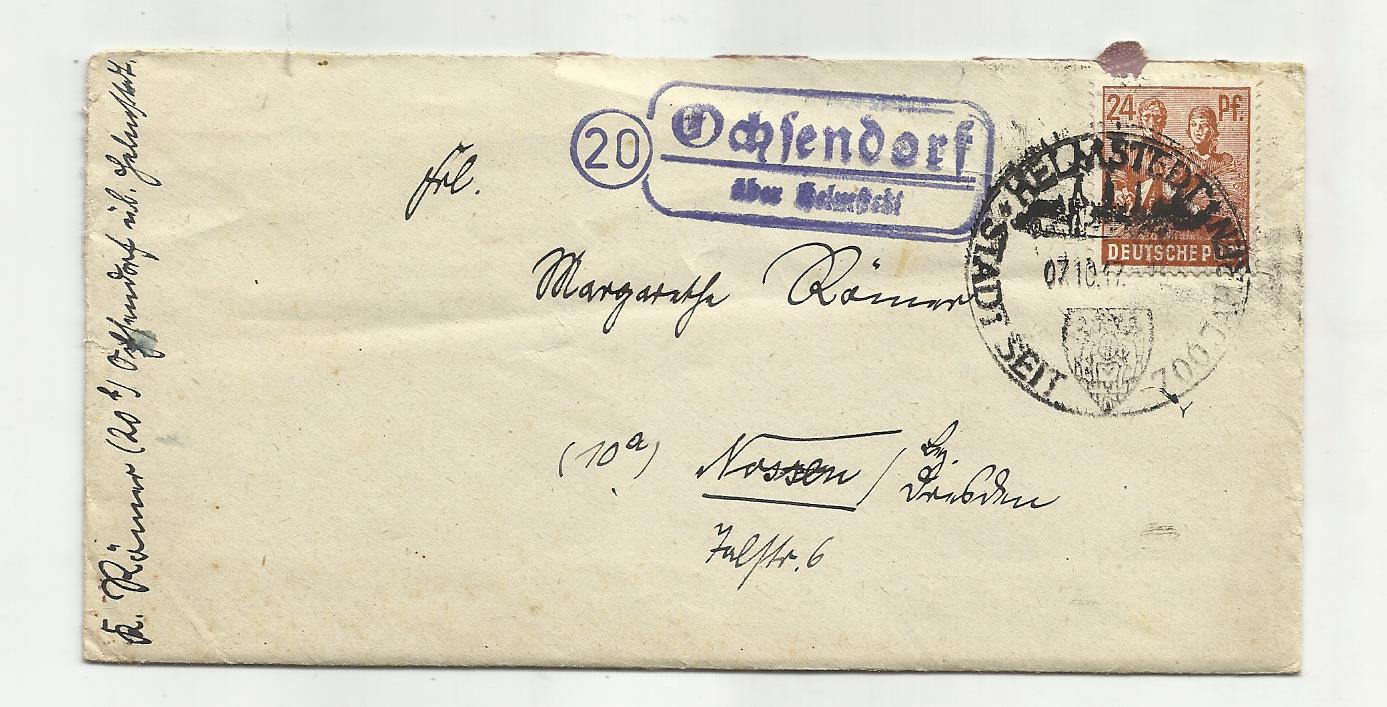 K. Römer (20b) Ochsendorf üb. Helmstedt.
20
Ochsendorf
über Helmstedt
24 Pf.
DEUTSCHE P
HELMSTEDT
STADT SEIT
700
07.10.47
Frl.
Margarethe Römer
(10a) Nossen / Bz. Dresden
Talstr. 6